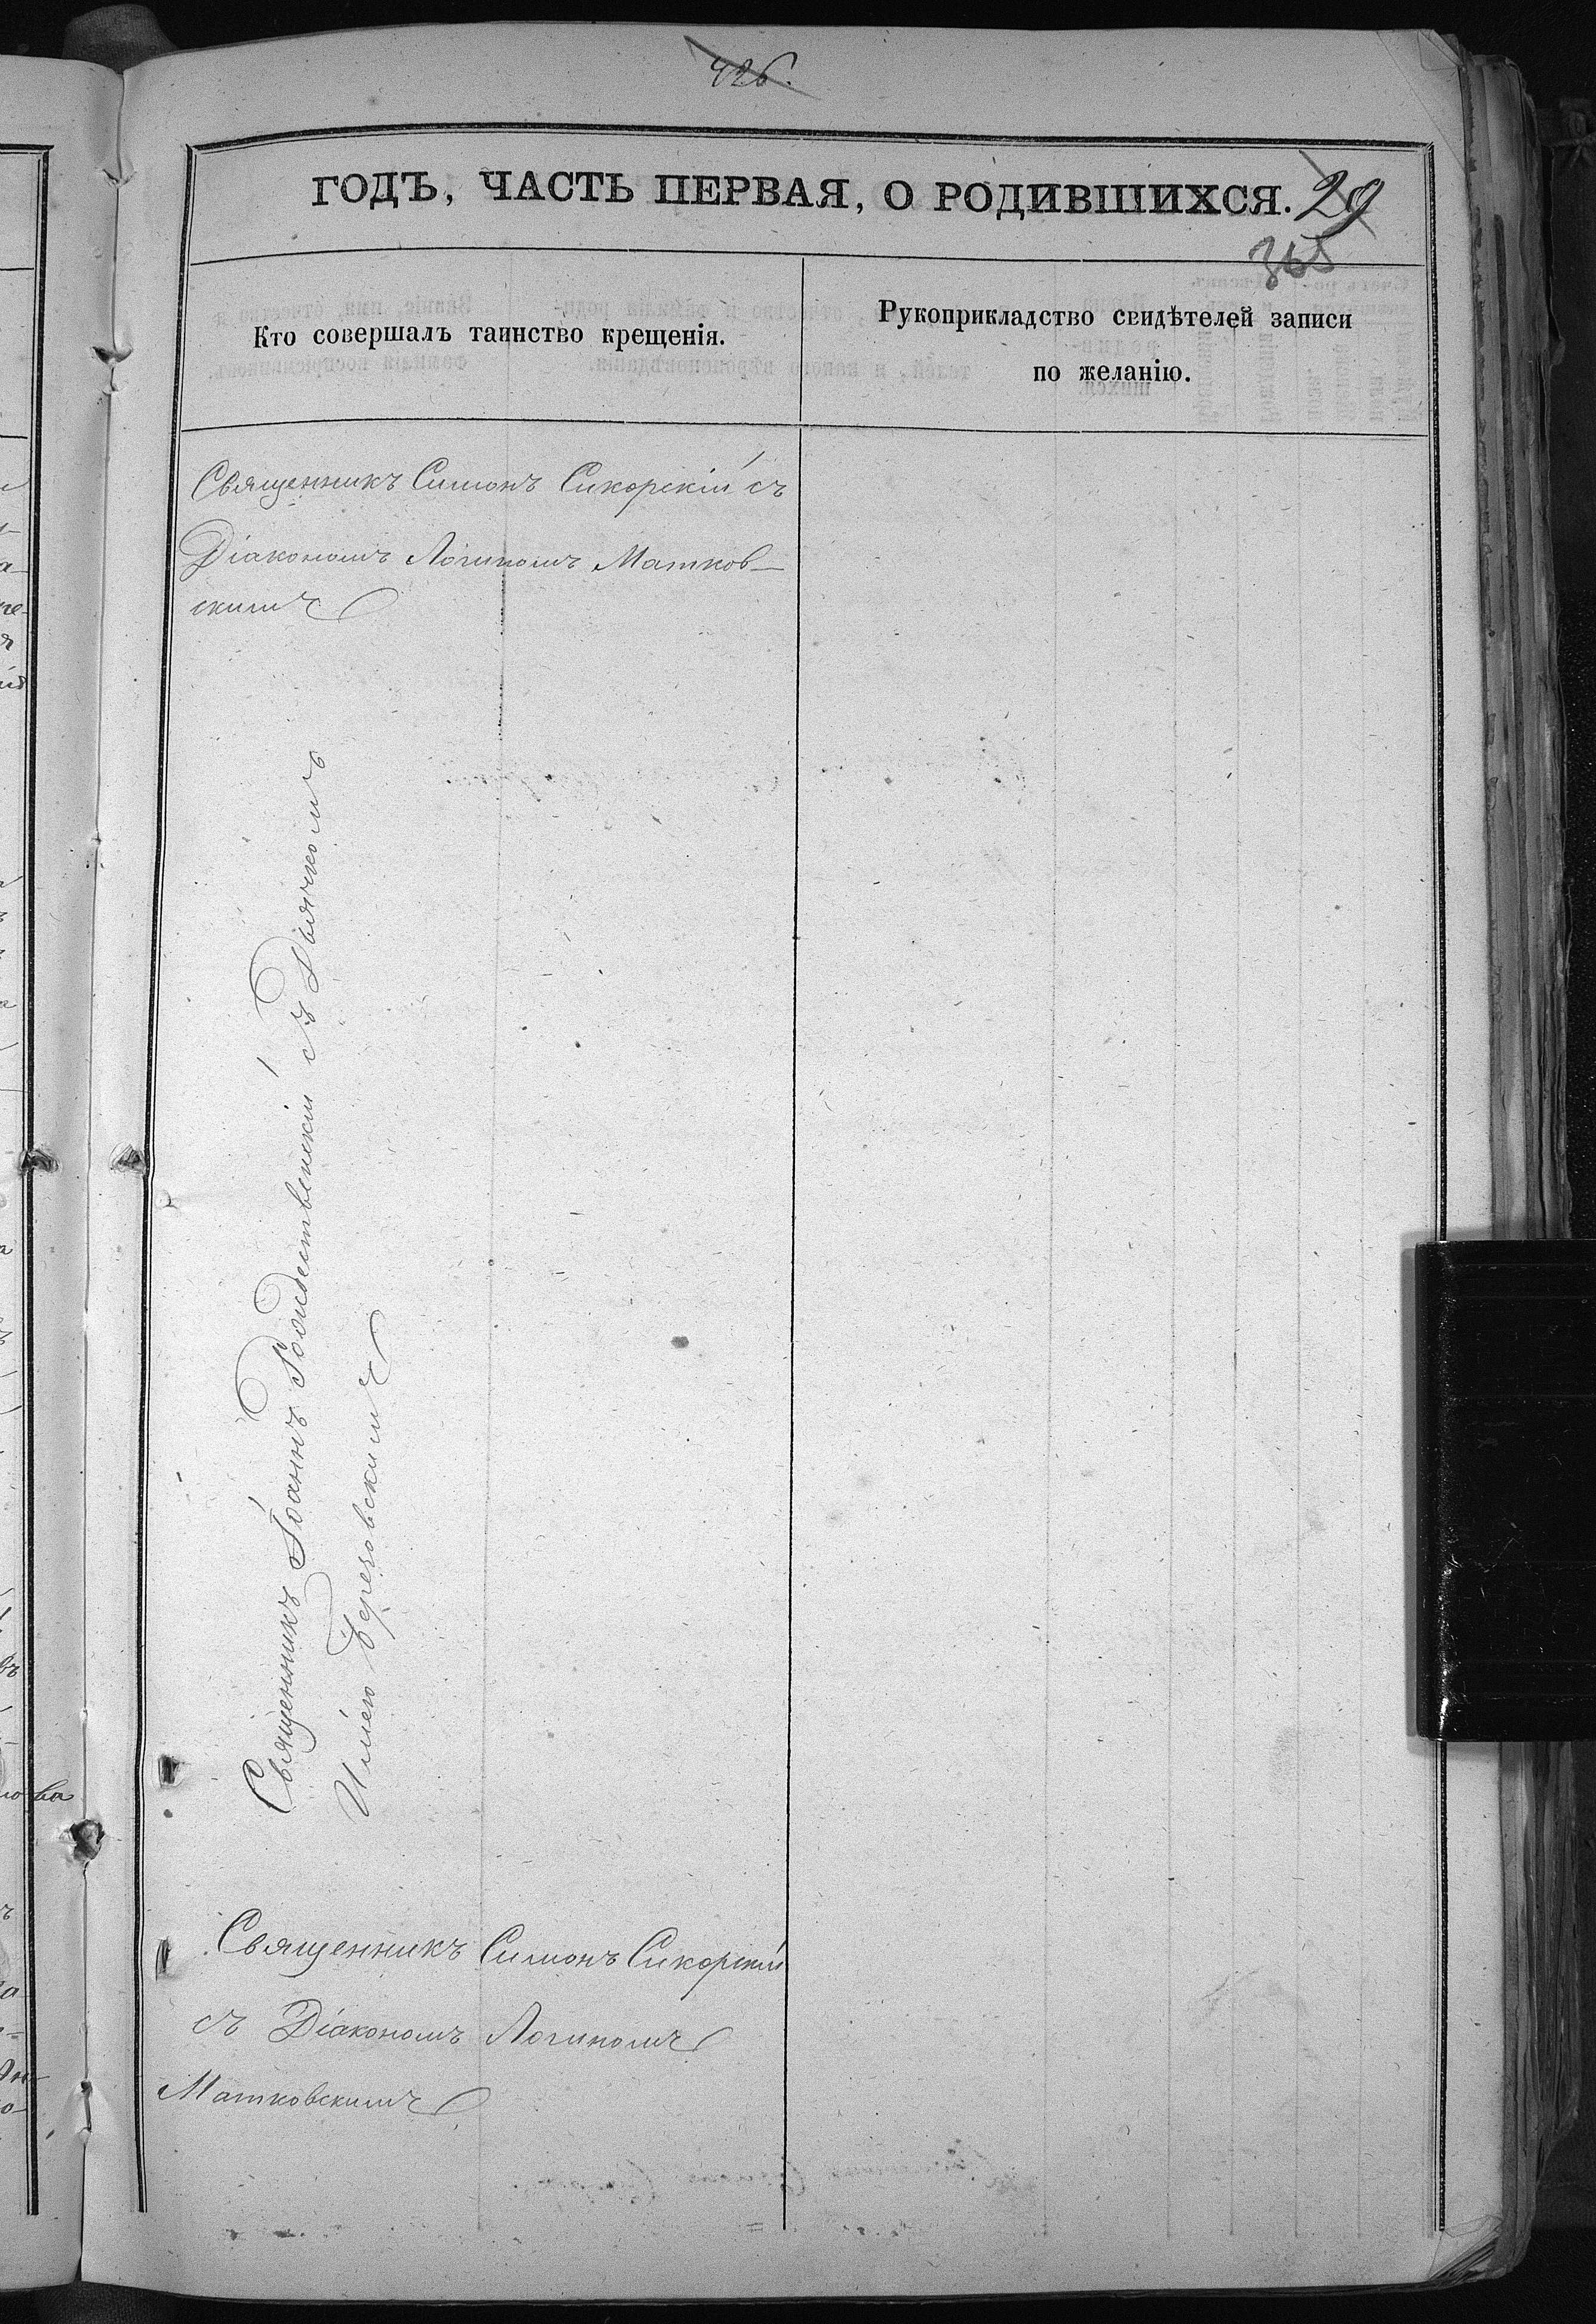 426.
ГОДЪ, ЧАСТЬ ПЕРВАЯ, О РОДИВШИХСЯ.
29
365
Кто совершалъ таинство крещенія.
Рукоприкладство свидѣтелей записи
по желанію.
Священникъ Симонъ Сикорскій съ
Діакономъ Логиномъ Матков-
скимъ
Священникъ Іоаннъ Рождественскій съ Дьячкомъ
Березовскимъ
Священникъ Симонъ Сикорскій
съ Діакономъ Логиномъ
Матковскимъ